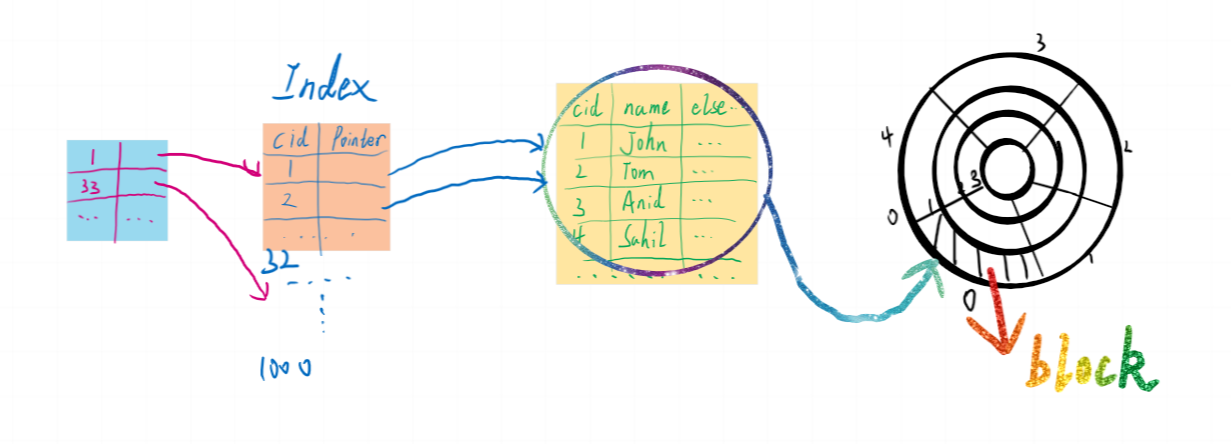 Index
1
33
... ...
cid Pointer
1
2
.... .
32
1000
cid name else..
1 John ...
2 Tom ...
3 Anid ...
4 Sahil ...
3
4
2
0
1
2
3
1
0
block